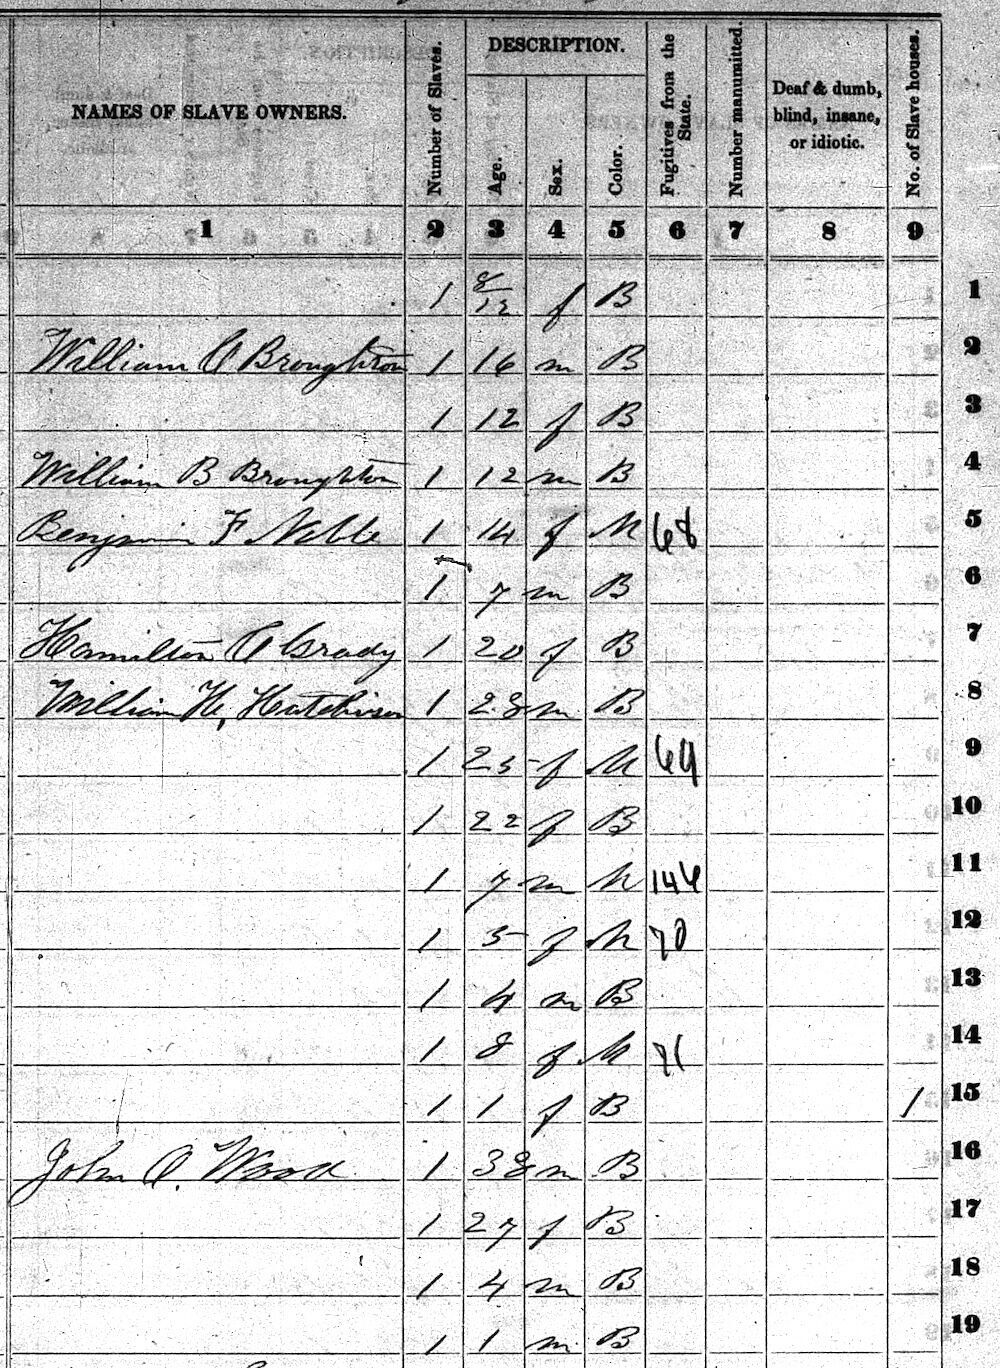 NAMES OF SLAVE OWNERS. Number of Slaves. DESCRIPTION. Age. Sex. Color. Fugitives from the State. Number manumitted. Deaf & dumb, blind, insane, or idiotic. No. of Slave houses.
1 2 3 4 5 6 7 8 9
1 8/12 f B 1
William A Broughton 1 16 m B 2
1 12 f B 3
William B Broughton 1 12 m B 4
Benjamin F Noble 1 14 f M 68 5
1 7 m B 6
Hamilton A Grady 1 20 f B 7
William H. Hutchison 1 28 m B 8
1 25 f M 69 9
1 22 f B 10
1 7 m M 146 11
1 5 f M 70 12
1 4 m B 13
1 8 f M 71 14
1 1 f B 1 15
John A. Wood 1 38 m B 16
1 27 f B 17
1 4 m B 18
1 1 m B 19